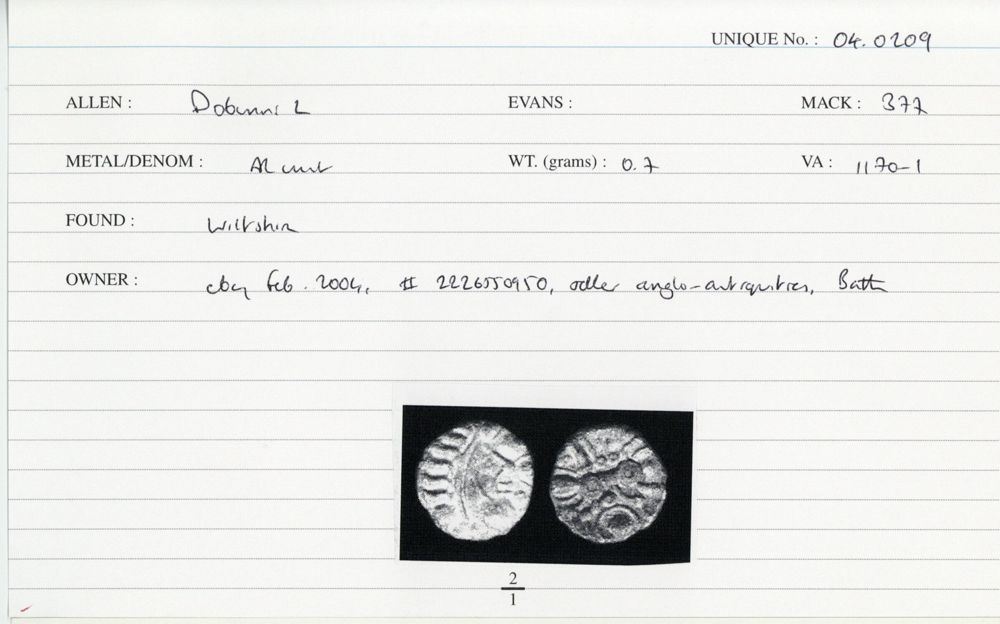 UNIQUE No. : 04.0209
ALLEN : Dobunni L EVANS : MACK : 377
METAL/DENOM : AR unit WT. (grams) : 0.7 VA : 1170-1
FOUND : Wiltshire
OWNER : ebay Feb. 2004, # 2226550950, seller anglo-antiquities, Bath
2
1